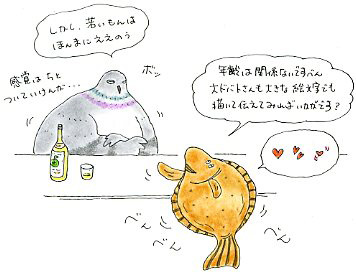 しかし、若いもんは
ほんまにええのう
感覚はちと
ついていけんが・・・
ボッ
年齢は関係ないですべん
犬ドバトさんも大きな絵文字でも
描いて伝えてみればいかがです?
べん
べん
べん